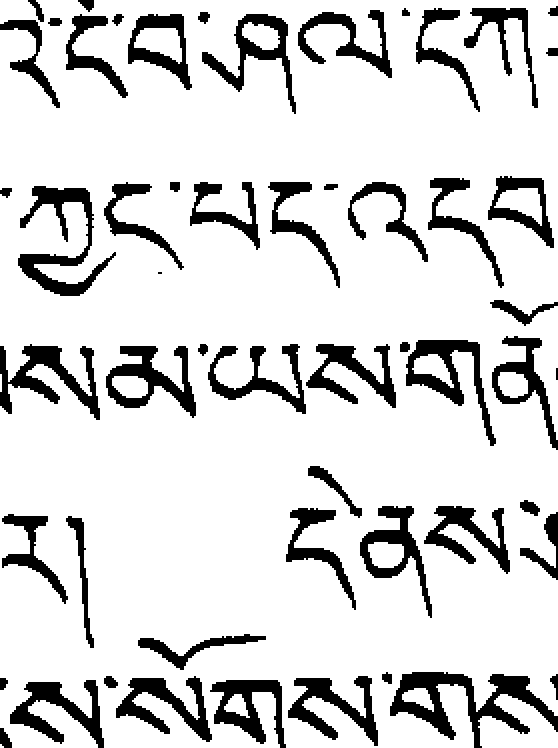 བ་ཞལ་དཀ
ཀྱང་པད་འདབ
སམ་ཡས་གནོ
ར། དེ་ནས་
ས་སོགས་གས